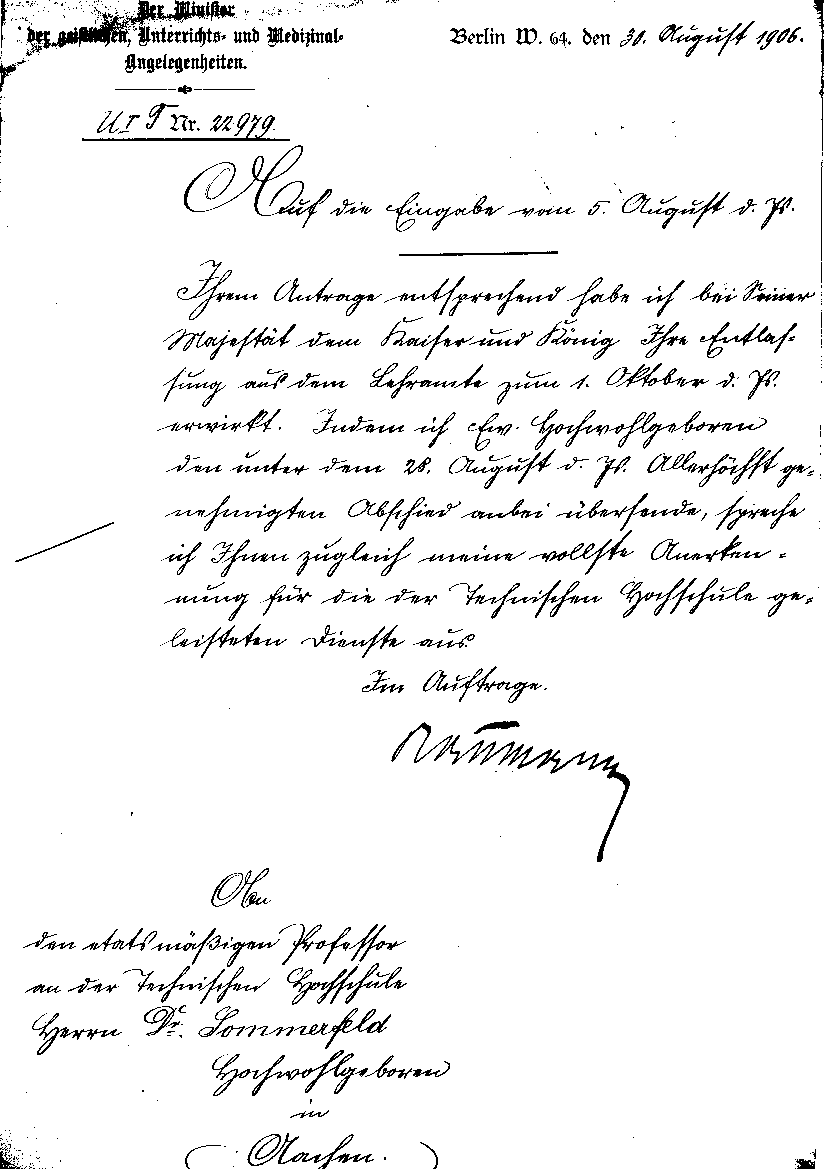 Der Minister
der geistlichen, Unterrichts- und Medizinal-
Angelegenheiten.
Berlin W. 64. den 30. August 1906.
U I T Nr. 22979.
Auf die Eingabe vom 5. August d. Js.
Ihrem Antrage entsprechend habe ich bei Seiner
Majestät dem Kaiser und König Ihre Entlas-
sung aus dem Lehramte zum 1. Oktober d. Js.
erwirkt. Indem ich Ew. Hochwohlgeboren
den unter dem 28. August d. Js. Allerhöchst ge-
nehmigten Abschied anbei übersende, spreche
ich Ihnen zugleich meine vollste Anerken-
nung für die der Technischen Hochschule ge-
leisteten Dienste aus.
Im Auftrage.
Naumann
An
den etatsmäßigen Professor
an der Technischen Hochschule
Herrn Dr. Sommerfeld
Hochwohlgeboren
in
Aachen.